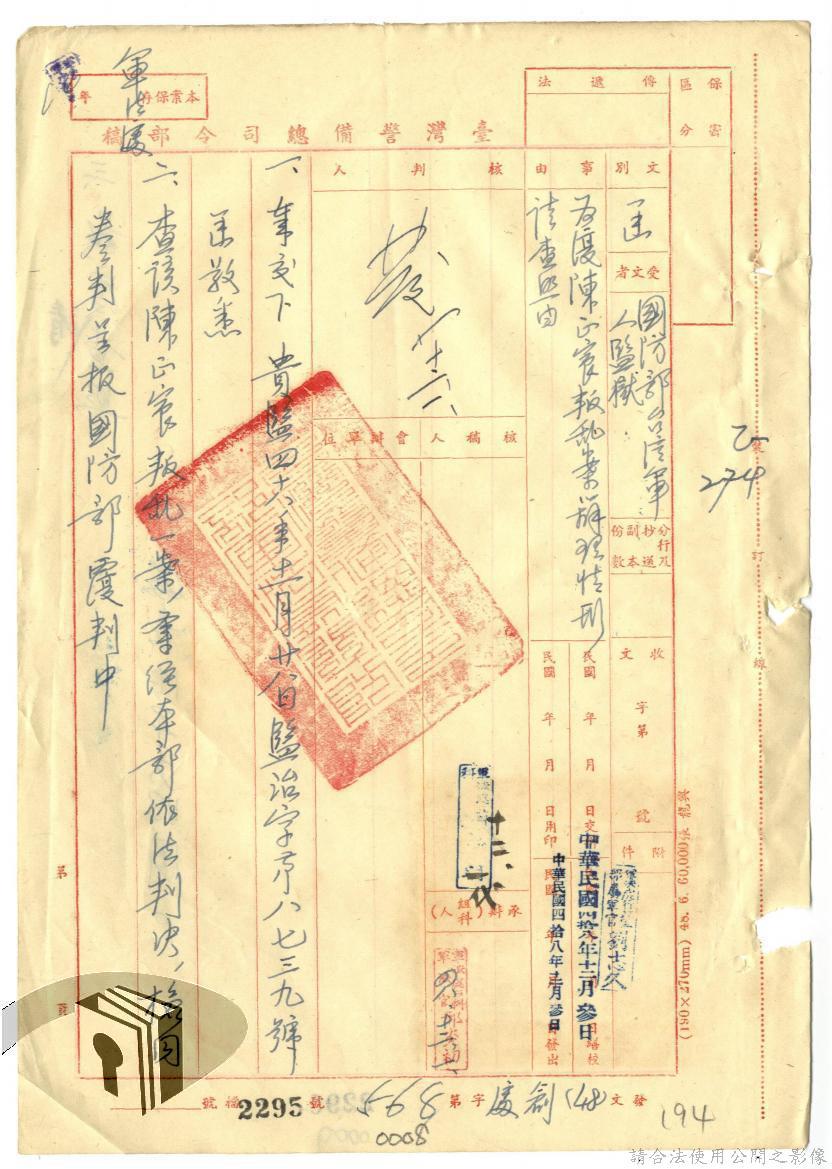 保密區分
傳遞法
本案保存 年
臺灣警備總司令部稿
軍法處
文別
函
受文者
國防部台灣軍人監獄
分行及抄送副本份數
收文 字第 號
附件
事由
為復陳正宸叛亂案辦理情形
請查照由
核判人
發
核稿人
會辦單位
承辦(科組人)
民國 年 月 日
民國 年 月 日用印
中華民國四拾八年十二月參日
中華民國四拾八年十二月參日發出
劉士久
一、奉交下 貴監四十八年十一月廿八日監治字第八七三九號
函敬悉
二、查該陳正宸叛亂一案,業經本部依法判決,檢同
卷判呈報國防部覆判中
裝
訂
線
乙
274
(190×270mm) 48. 6. 60,000張
發文(48)創處字第568號
檔號 2295
0008
194
請合法使用公開之影像